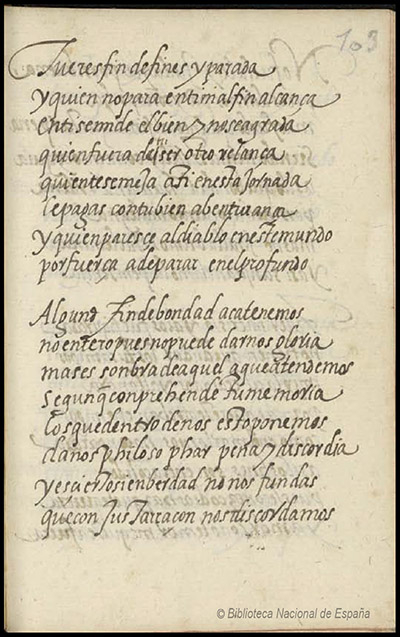 103
Tu eres fin de fines y parada
y quien no para en ti mal fin alcança
en ti se mide el bien y no se agrada
quien fuera del ser otro se lança
quien te semeja a ti en esta Jornada
le pagas con tu bien abenturança
y quien paresce al diablo en este mundo
por fuerça a de parar en el profundo
Algund fin de bondad aca tenemos
no entero pues no puede darnos gloria
mas es sonbra de aquel a que atendemos
Segun conprehende tu memoria
los que dentro de nos esto ponemos
da nos philosophar pena y discordia
y es cierto si en berdad no nos fundas
que con Jus Tarracon nos discordamos
© Biblioteca Nacional de España